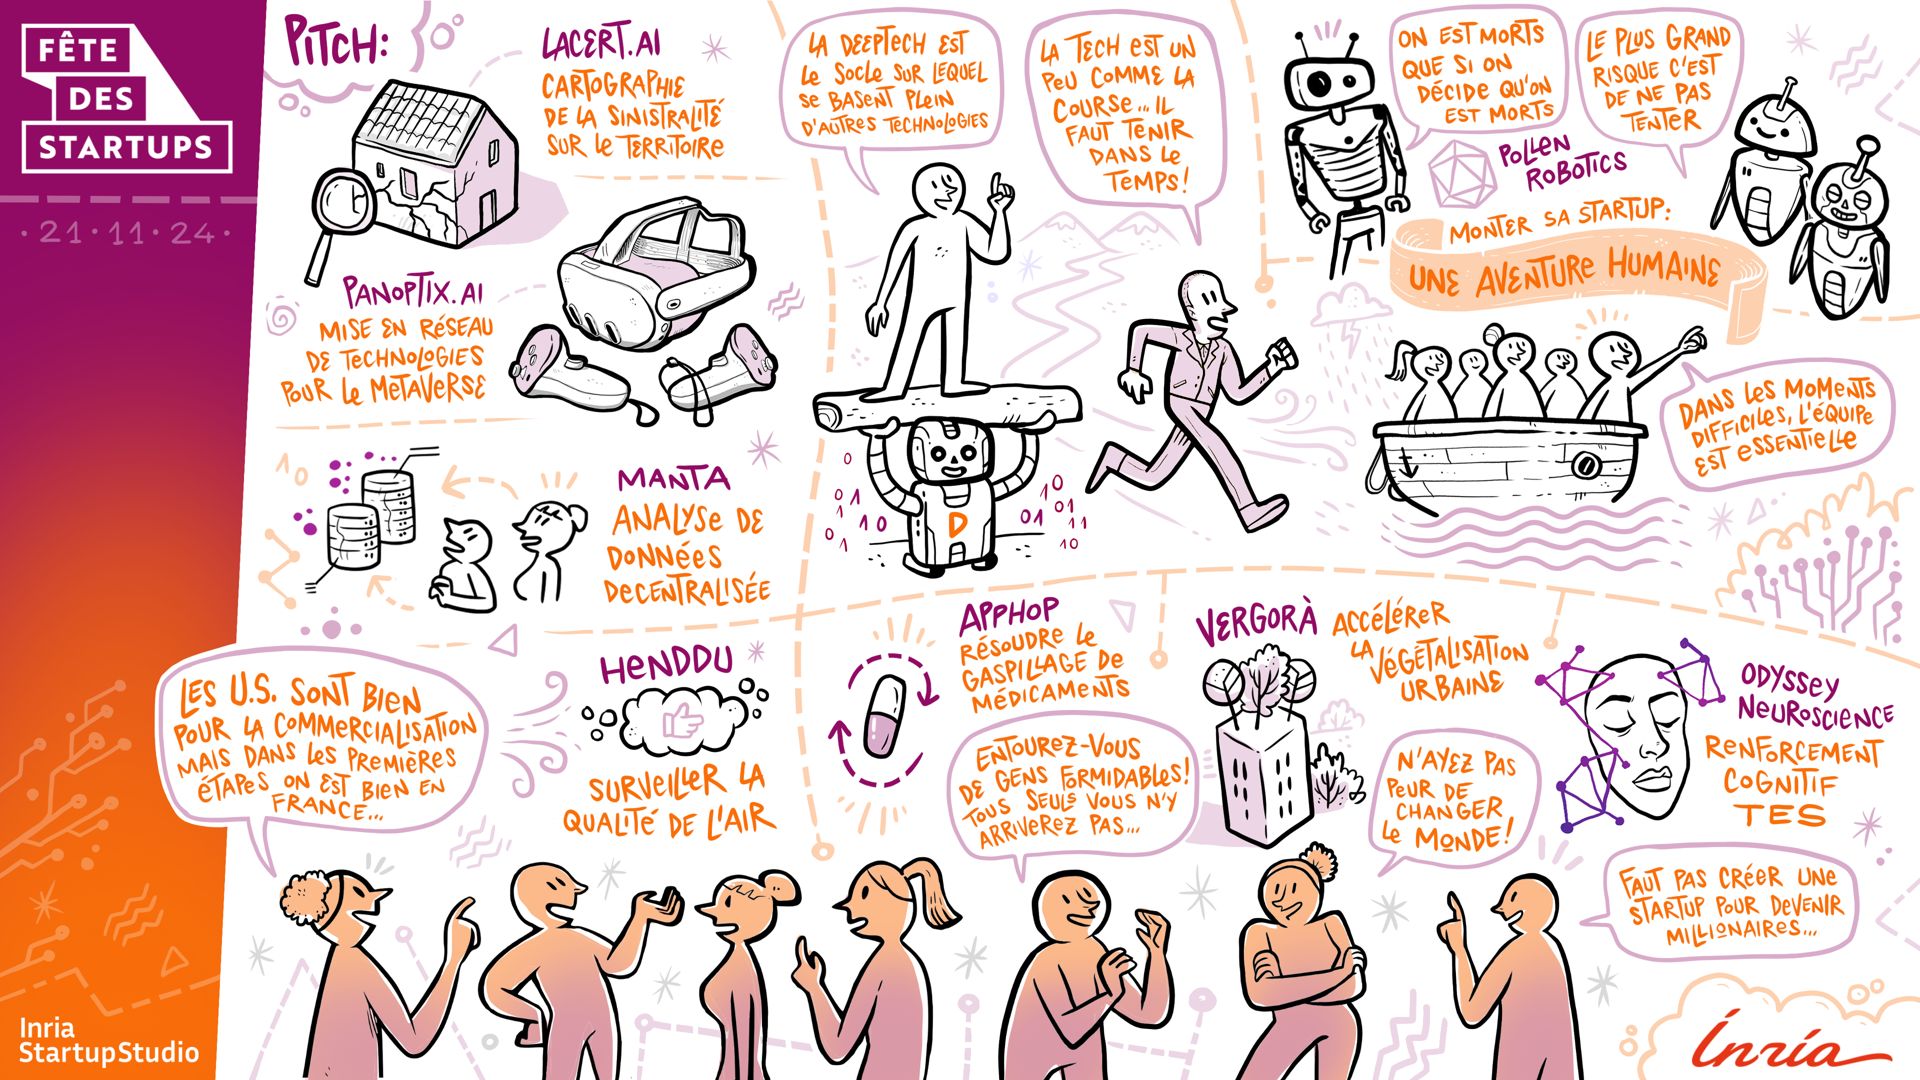 FÊTE
DES
STARTUPS
·21·11·24·
PITCH:
LACERT.AI
CARTOGRAPHIE
DE LA SINISTRALITÉ
SUR LE TERRITOIRE
PANOPTIX.AI
MISE EN RÉSEAU
DE TECHNOLOGIES
POUR LE METAVERSE
10
MANTA
ANALYSE DE
DONNÉES
DECENTRALISÉE
LA DEEPTECH EST
LE SOCLE SUR LEQUEL
SE BASENT PLEIN
D'AUTRES TECHNOLOGIES
LA TECH EST UN
PEU COMME LA
COURSE... IL
FAUT TENIR
DANS LE
TEMPS!
0
01
0
10
0
1
D
10
01
01
11
10
ON EST MORTS
QUE SI ON
DÉCIDE QU'ON
EST MORTS
LE PLUS GRAND
RISQUE C'EST
DE NE PAS
TENTER
POLLEN
ROBOTICS
MONTER SA STARTUP:
UNE AVENTURE HUMAINE
DANS LES MOMENTS
DIFFICILES, L'ÉQUIPE
EST ESSENTIELLE
LES U.S. SONT BIEN
POUR LA COMMERCIALISATION
MAIS DANS LES PREMIÈRES
ÉTAPES ON EST BIEN EN
FRANCE...
HENDDU
SURVEILLER LA
QUALITÉ DE L'AIR
APPHOP
RÉSOUDRE LE
GASPILLAGE DE
MÉDICAMENTS
ENTOUREZ-VOUS
DE GENS FORMIDABLES!
TOUS SEULS VOUS N'Y
ARRIVEREZ PAS...
VERGORÀ
ACCÉLÉRER
LA
VÉGÉTALISATION
URBAINE
N'AYEZ PAS
PEUR DE
CHANGER
LE MONDE!
ODYSSEY
NEUROSCIENCE
RENFORCEMENT
COGNITIF
TES
FAUT PAS CRÉER UNE
STARTUP POUR DEVENIR
MILLIONAIRES...
Inria
StartupStudio
Inria